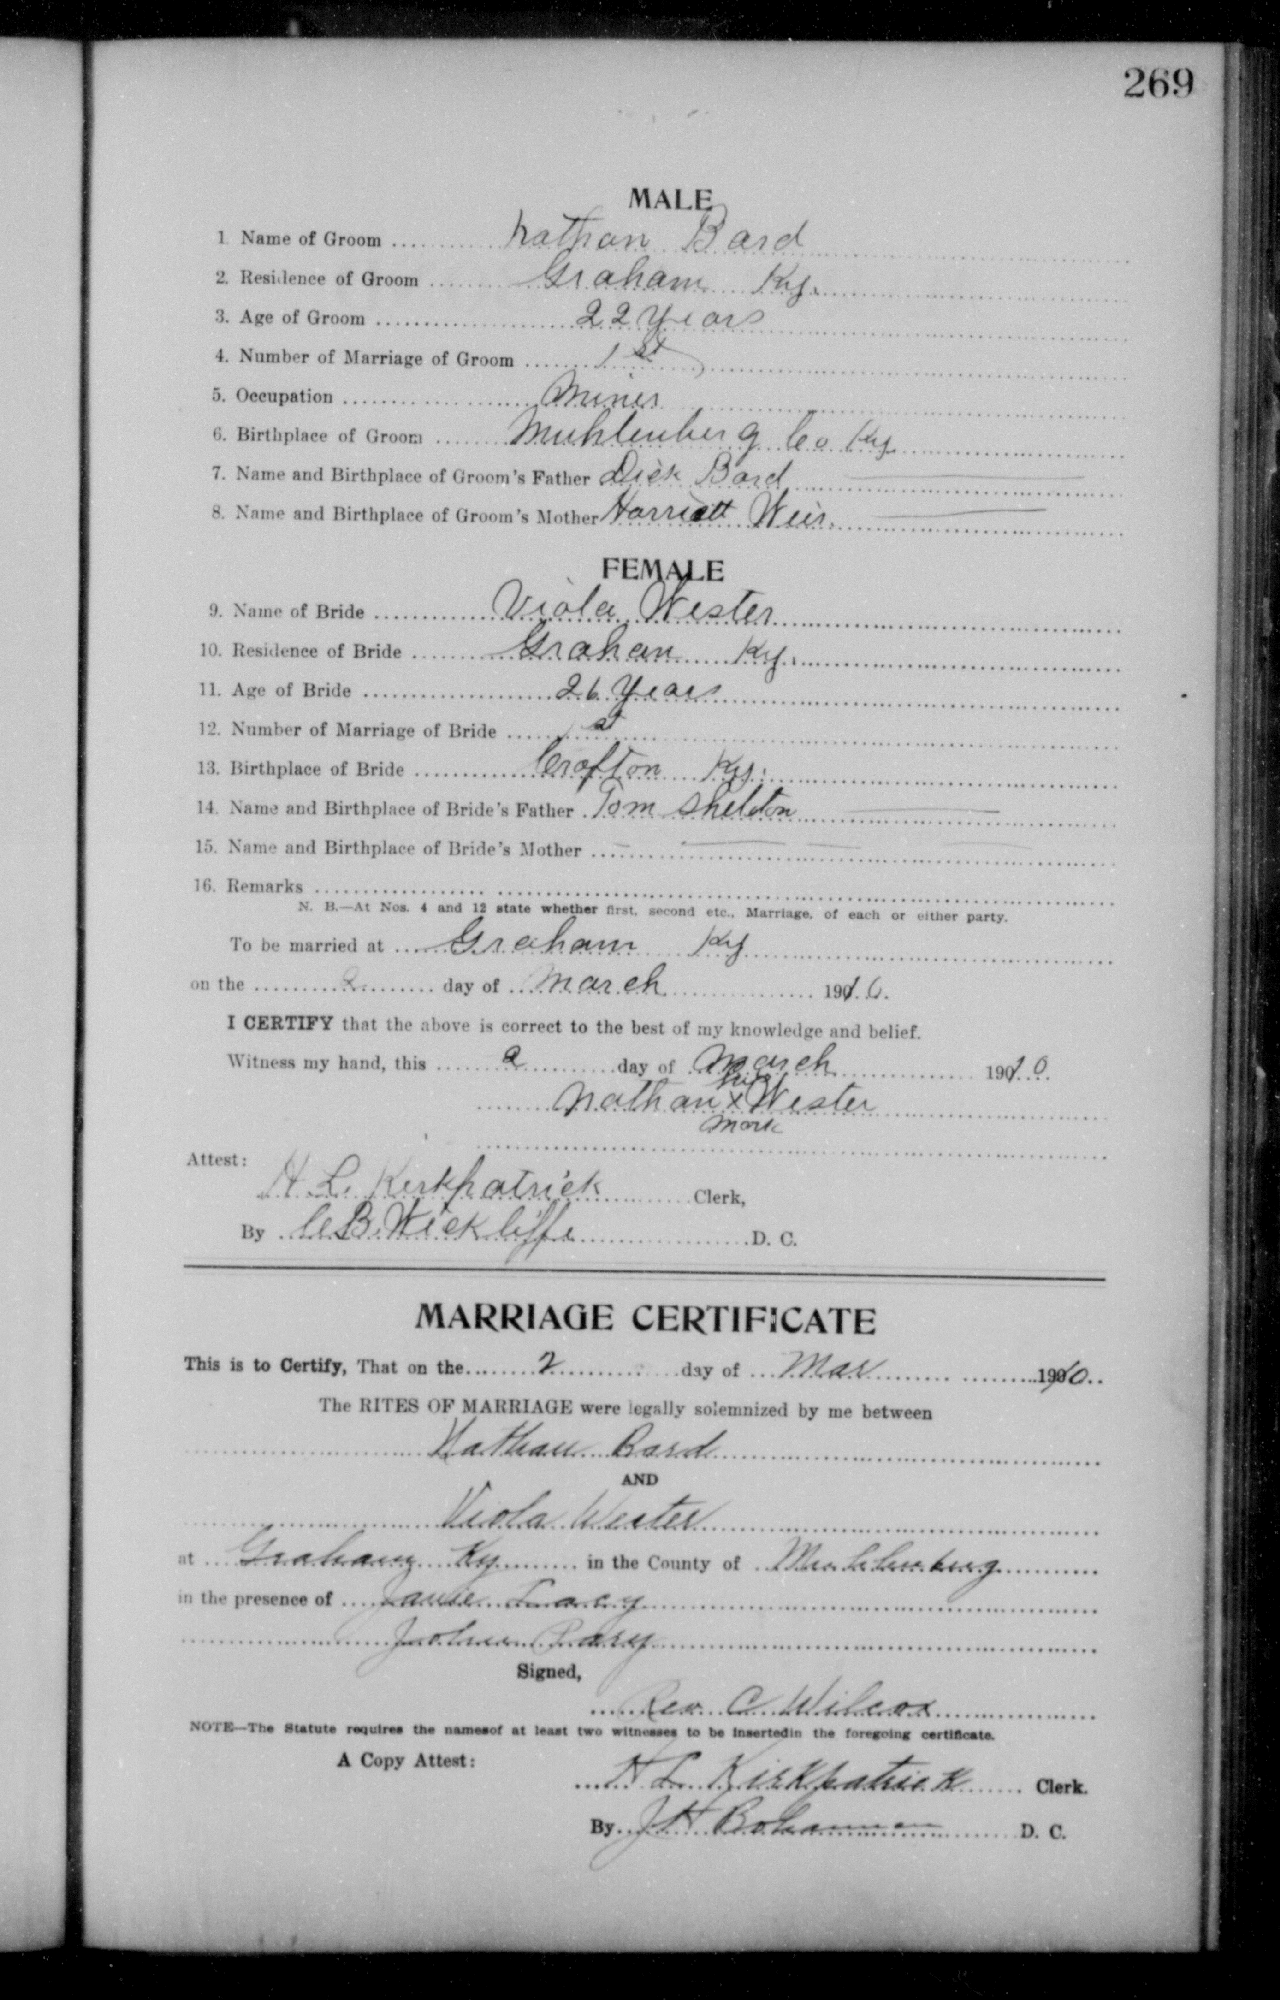 269
MALE
1. Name of Groom Nathan Bard
2. Residence of Groom Graham Ky.
3. Age of Groom 22 Years
4. Number of Marriage of Groom 1st
5. Occupation Miner
6. Birthplace of Groom Muhlenberg Co Ky
7. Name and Birthplace of Groom's Father Dick Bard
8. Name and Birthplace of Groom's Mother Harriett Weir
FEMALE
9. Name of Bride Viola Wester
10. Residence of Bride Graham Ky.
11. Age of Bride 26 Years
12. Number of Marriage of Bride 1st
13. Birthplace of Bride Crofton Ky.
14. Name and Birthplace of Bride's Father Tom Shelton
15. Name and Birthplace of Bride's Mother
16. Remarks
N. B.—At Nos. 4 and 12 state whether first, second etc., Marriage, of each or either party.
To be married at Graham Ky
on the 2 day of March 1910.
I CERTIFY that the above is correct to the best of my knowledge and belief.
Witness my hand, this 2 day of March 1910
his
Nathan x Wester
mark
Attest:
H. L. Kirkpatrick Clerk,
By C.B. Wickliffe D. C.
MARRIAGE CERTIFICATE
This is to Certify, That on the 2 day of Mar 1910
The RITES OF MARRIAGE were legally solemnized by me between
Nathan Bard
AND
Viola Wester
at Graham Ky in the County of Muhlenberg
in the presence of Lacy
Signed,
Rev. C Wilcox
NOTE—The Statute requires the namesof at least two witnesses to be insertedin the foregoing certificate.
A Copy Attest:
H L Kirkpatrick Clerk.
By J H Bohannon D. C.